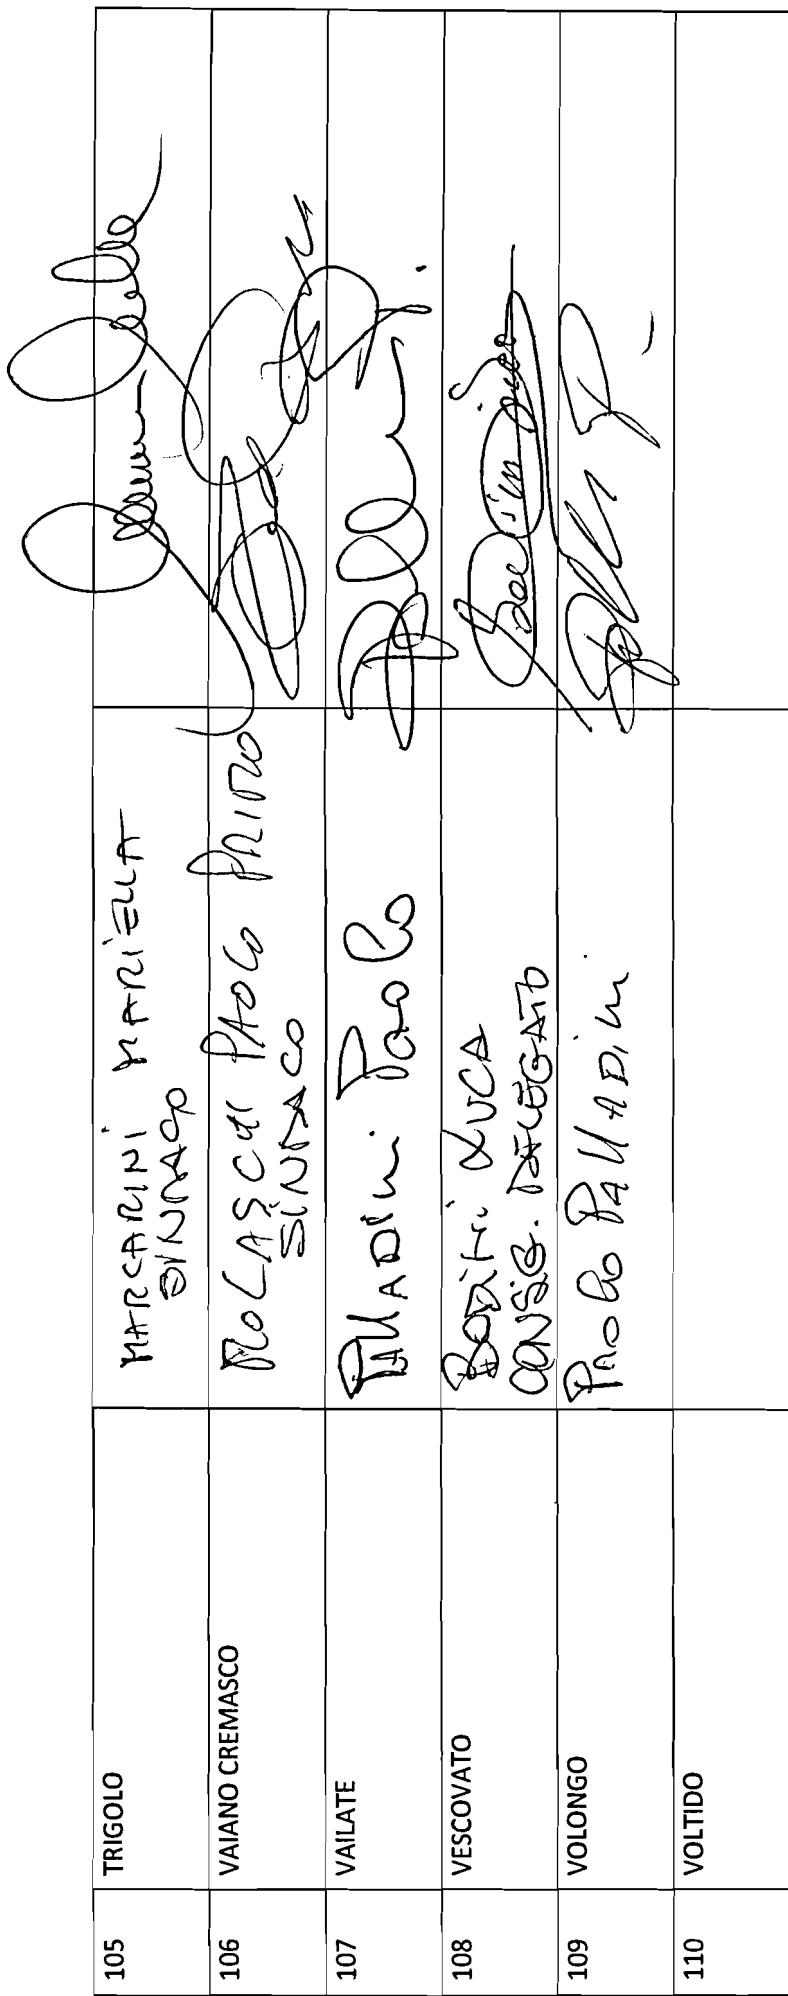 105 TRIGOLO MARCARINI MARIELLA
SINDACO
106 VAIANO CREMASCO MOLASCHI PAOLO PRIMO
SINDACO
107 VAILATE PALLADINI PAOLO
108 VESCOVATO LUCA
CONSIG. DELEGATO
109 VOLONGO PAOLO PALLADINI
110 VOLTIDO